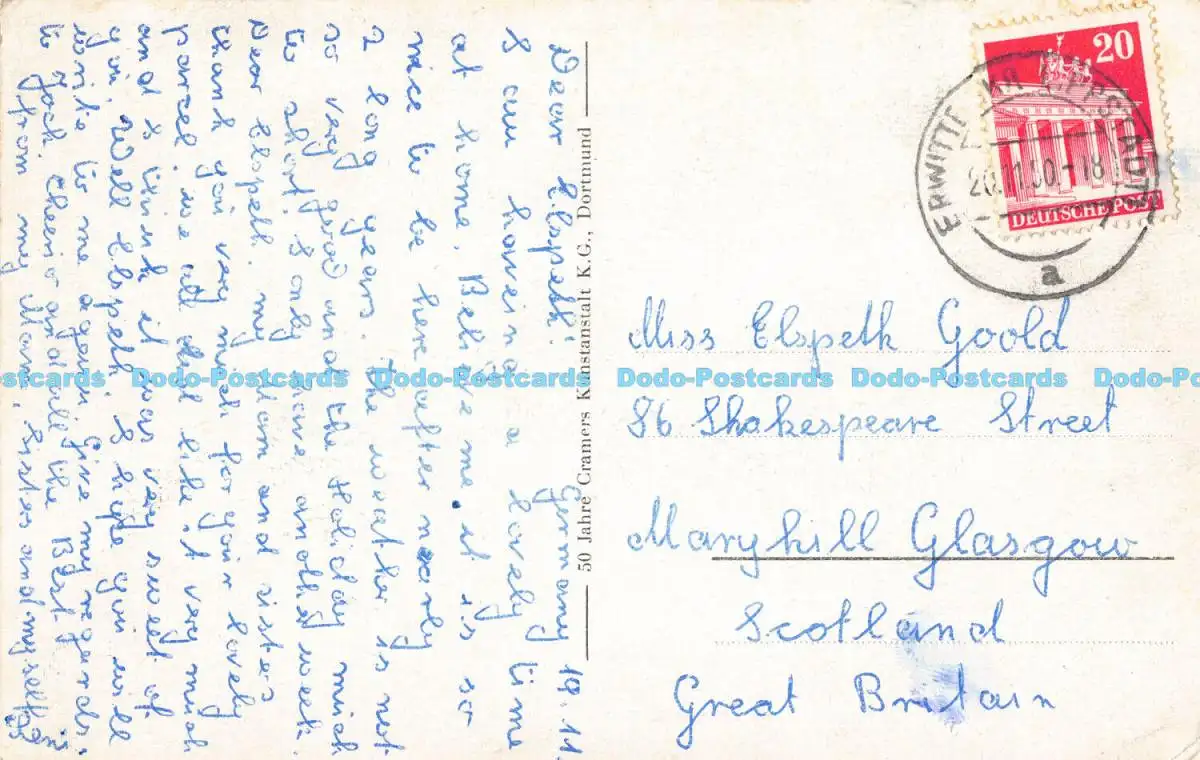 Germany 19.11.
Dear Elspeth!
I am having a lovely time
at home. Believe me it is so
nice to be here after nearly
2 long years. The weather is not
so very good and the Holiday much
to short. I only have another week.
Dear Elspeth. my Mam and sister
thank you very much for your lovely
parcel. we all did like it very much
and I think it was very sweet of
you. Well Elspeth I hope you will
write to me again. Give my regards
to Jack. Cheerio and all the Best.
from my Mam, sister and myself
50 Jahre Cramers Kunstanstalt K.G., Dortmund
20
DEUTSCHE POST
ERWITTE KR LIPPSTADT
a
Miss Elspeth Goold
86 Shakespeare Street
Maryhill Glasgow
Scotland
Great Britain
Dodo-Postcards Dodo-Postcards Dodo-Postcards Dodo-Postcards Dodo-Postcards